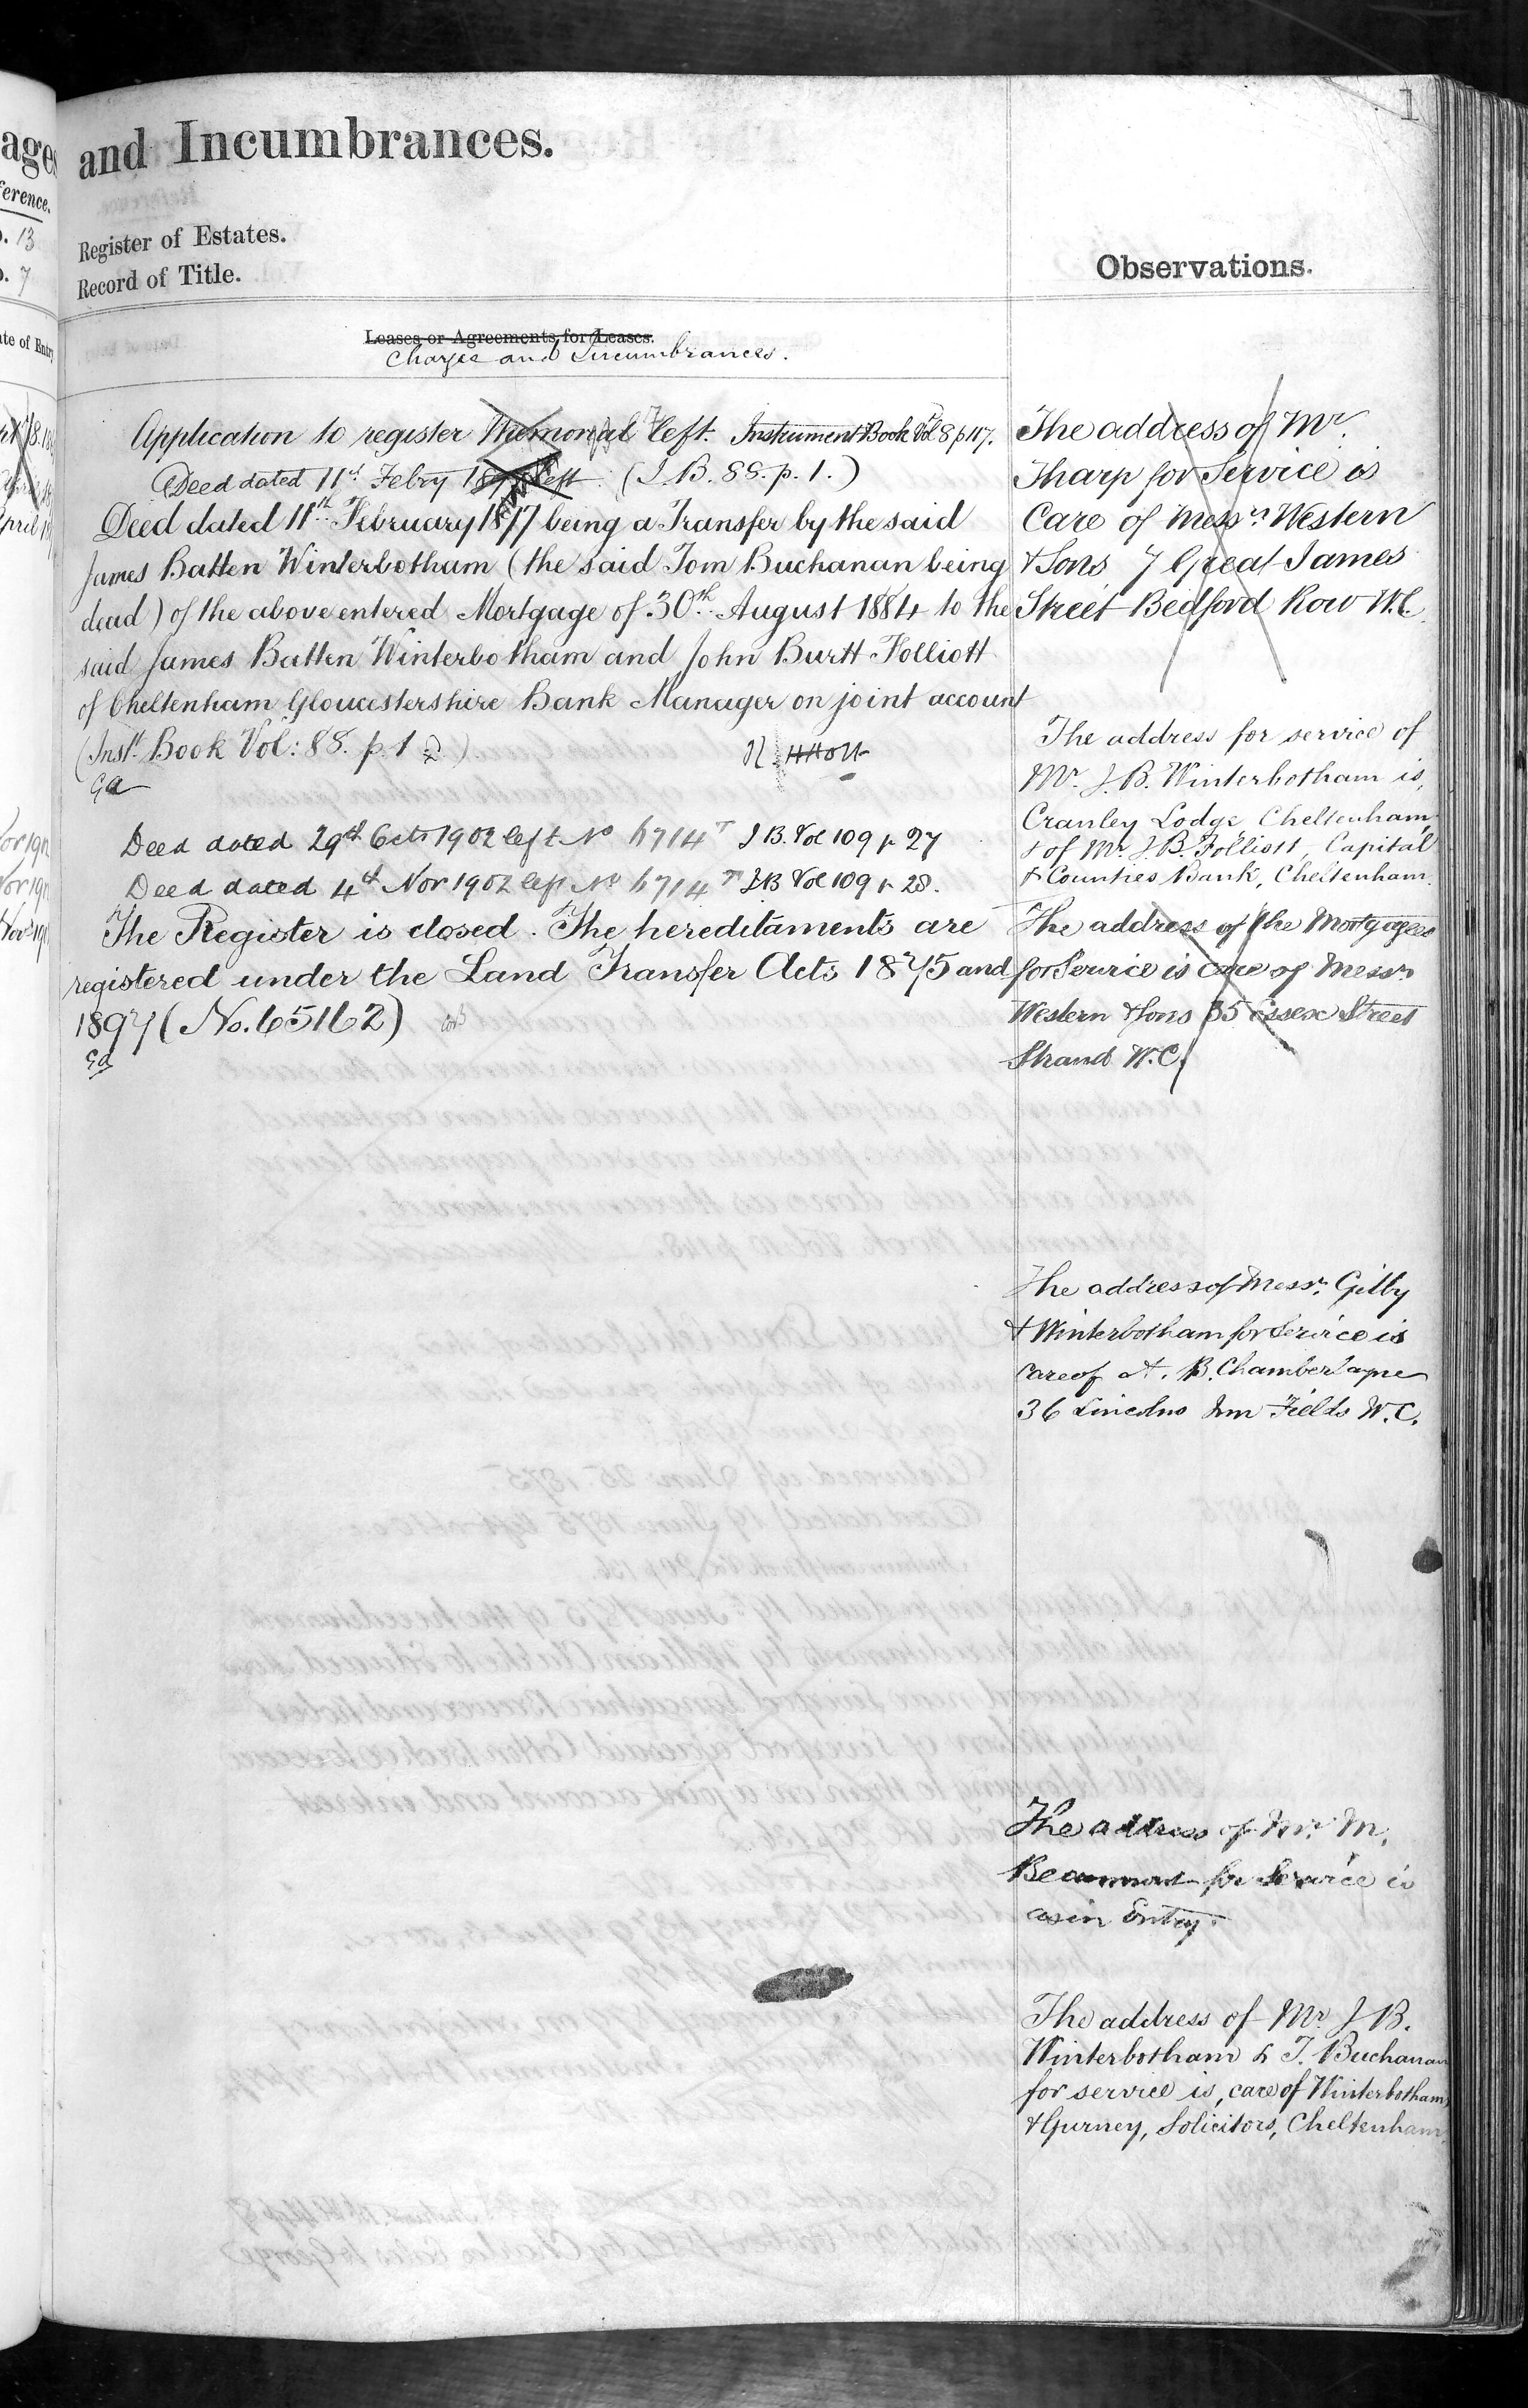 and Incumbrances.
Register of Estates.
Record of Title.
Leases or Agreements for Leases.
Charges and Incumbrances.
Application to register Memorial left. Instrument Book Vol 8 p 117.
Deed dated 11th Febry left (I.B. 88. p. 1.)
Deed dated 11th February 1877 being a Transfer by the said
James Batten Winterbotham (the said Tom Buchanan being
dead) of the above entered Mortgage of 30th August 1884 to the
said James Batten Winterbotham and John Burtt Folliott
of Cheltenham Gloucestershire Bank Manager on joint account
(Inst. Book Vol: 88. p. 1)
Deed dated 29th Octr 1902 left No 6714T I B. Vol 109 p 27
Deed dated 4th Nov 1902 left No 6714T I B Vol 109 p 28.
The Register is closed. The hereditaments are
registered under the Land Transfer Acts 1875 and
1897 (No. 65162)
1
Observations.
The address of Mr.
Tharp for Service is
Care of Messrs Western
& Sons 7 Great James
Street Bedford Row W.C.
The address for service of
Mr. J. B. Winterbotham is,
Cranley Lodge Cheltenham,
& of Mr J. B. Folliott, Capital
& Counties Bank, Cheltenham.
The address of the Mortgagee
for Service is care of Messrs
Western & Sons 35 Essex Street
Strand W.C.
The address of Messrs Gilby
& Winterbotham for Service is
care of A. B. Chamberlayne
36 Lincolns Inn Fields W.C.
The address of Mr. M.
Beaumont for Service is
as in Entry.
The address of Mr J B.
Winterbotham & T. Buchanan
for service is, care of Winterbotham
& Gurney, Solicitors, Cheltenham.